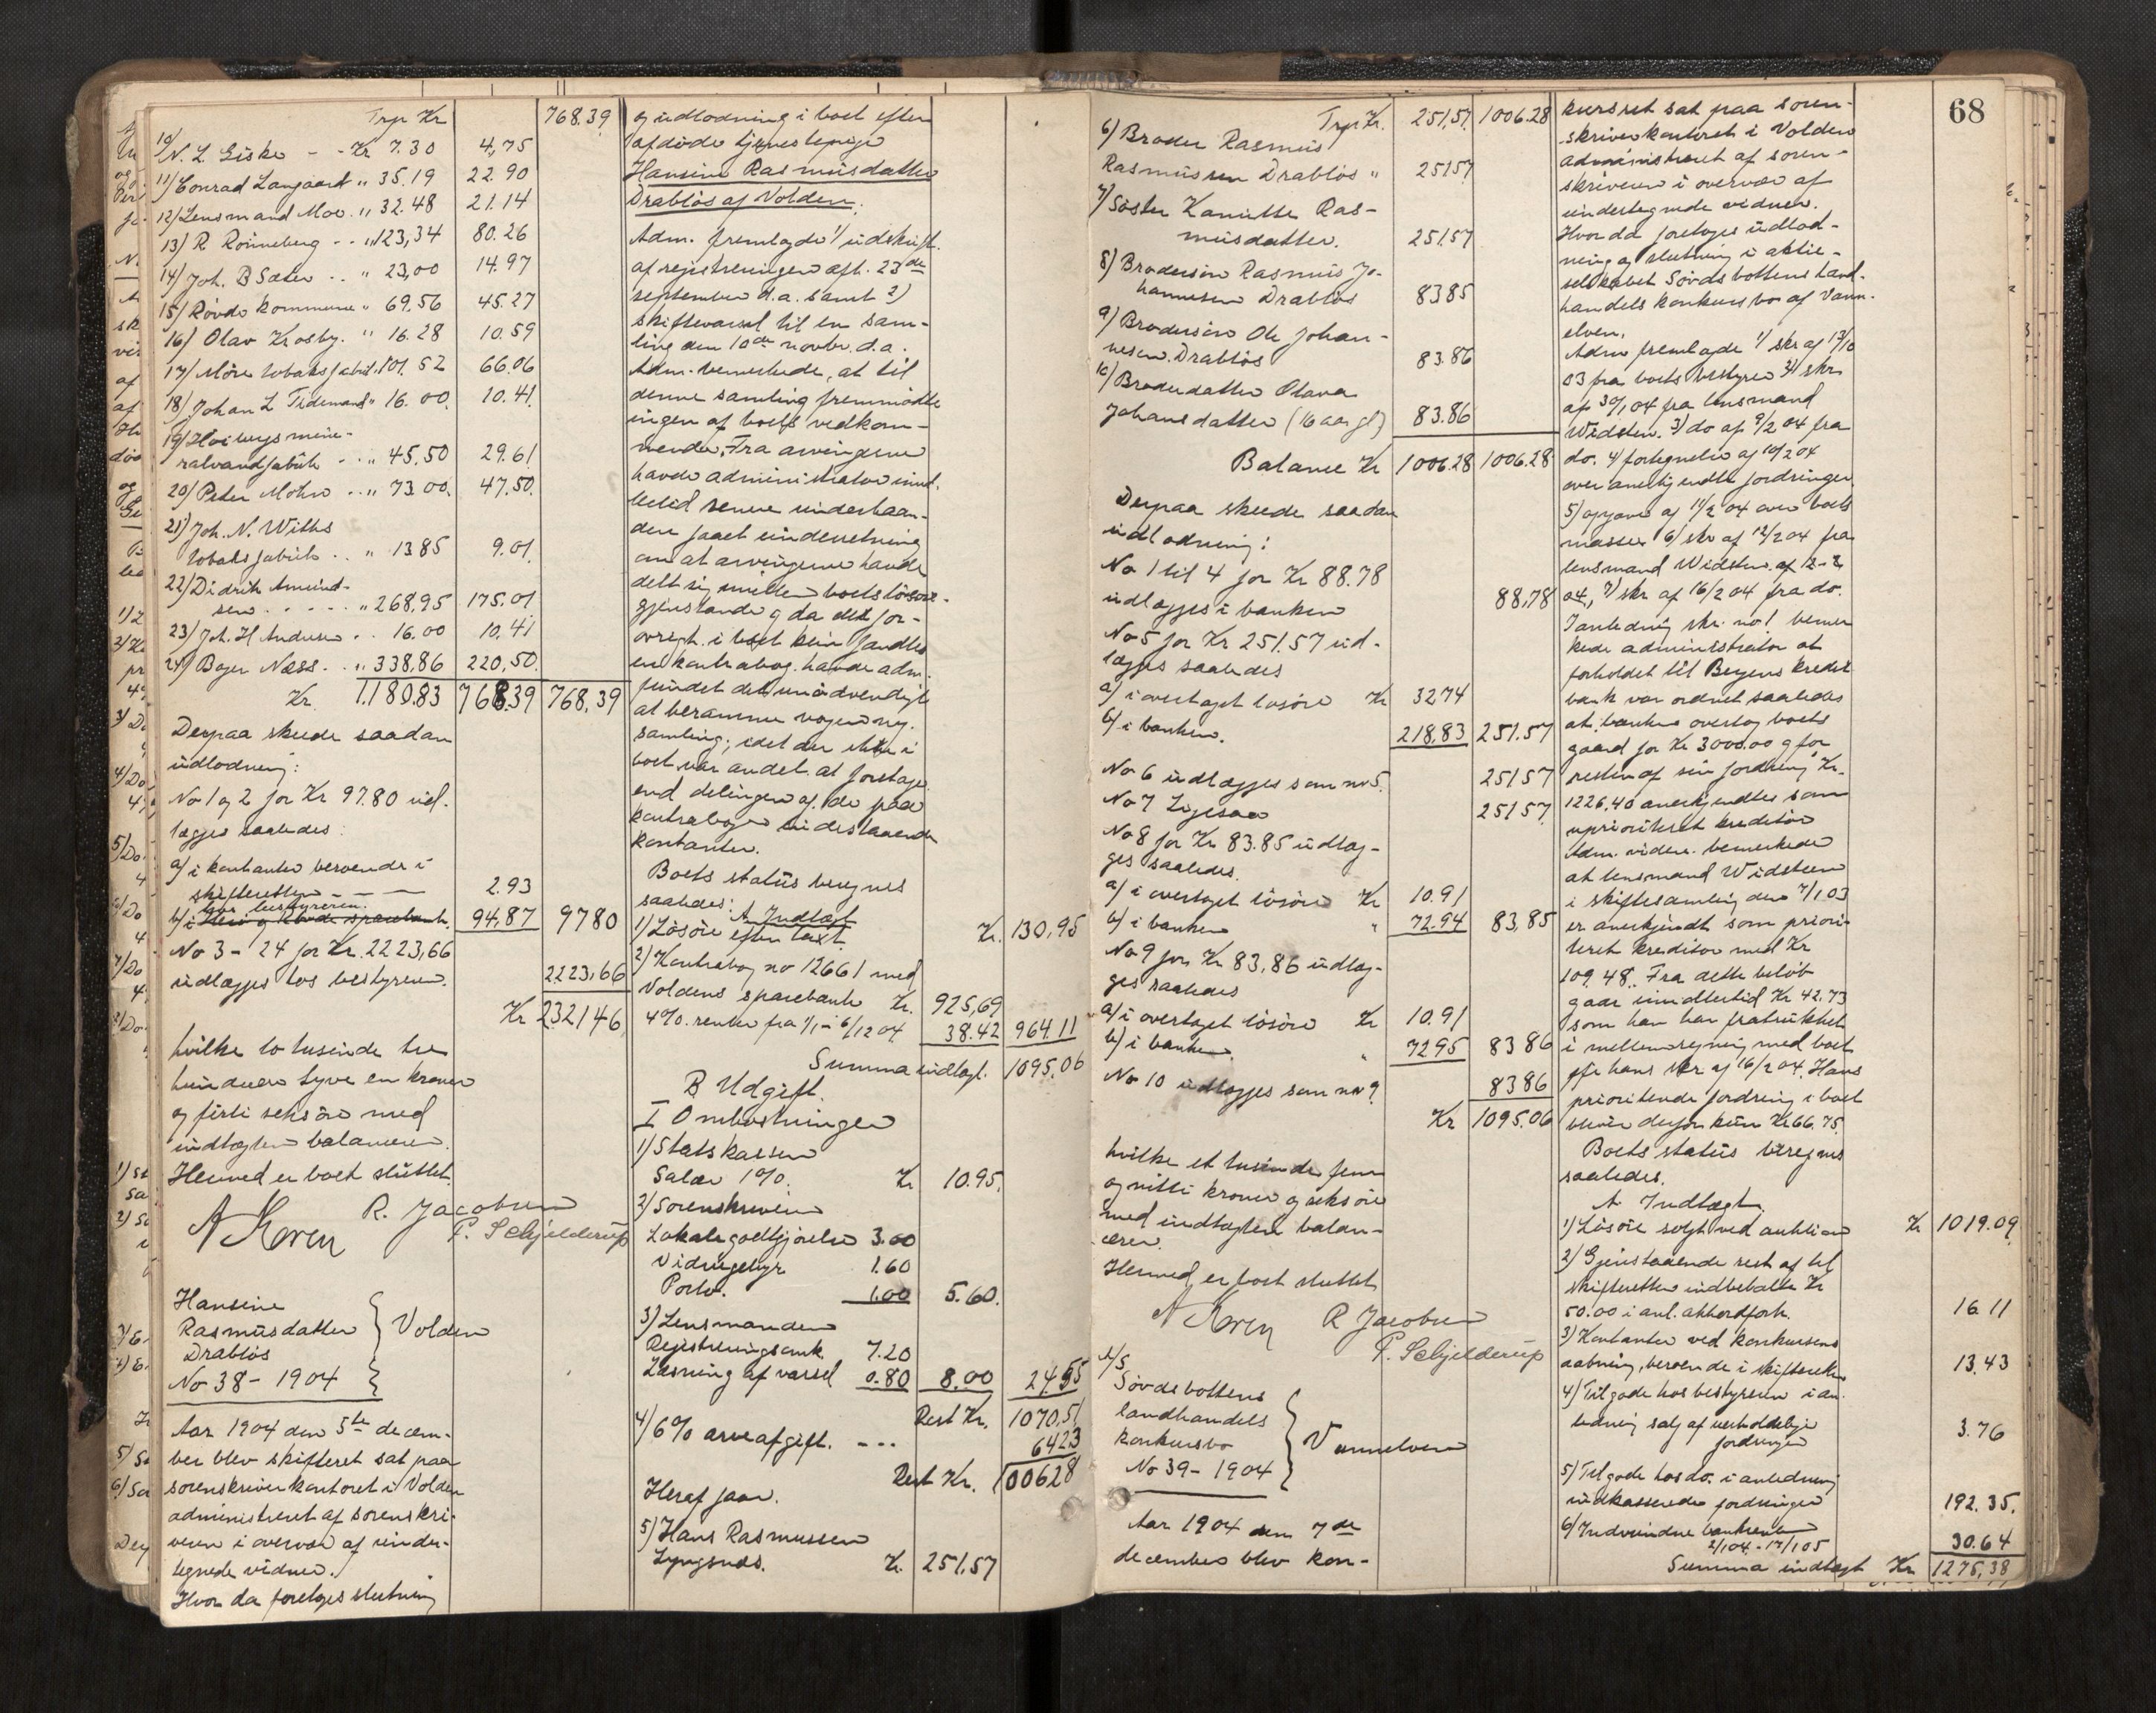 Trp Kr 768.39
10/ N. L. Giske - - Kr 7.30 4,75
11/ Conrad Langaard " 35.19 22.90
12/ Lensmand Moe. " 32.48 21.14
13/ R Rönneberg - - " 123,34 80.26
14/ Joh. B Sæter - - " 23,00 14.97
15/ Rövde kommune " 69.56 45.27
16/ Olav Krosby. " 16.28 10.59
17/ Möre tobaksfabrik. 101.52 66.06
18/ Johan L Tidemand " 16.00. 10.41.
19/ Höibergs mine-
ralvandfabrik - - " 45,50 29.61
20/ Peter Möhre - - " 73 00. 47.50.
21/ Joh. N. Withs
tobaksfabrik - - " 13 85 9.01.
22/ Didrik Amund-
sen - - - - - " 268.95 175.01
23/ Joh. H Andersen - - 16.00 10.41
24/ Bojer Næss. - - " 338,86 220,50.
Kr. 1180.83 768.39 768,39
Derpaa skeede saadan
udlodning:
No 1 og 2 for Kr 97.80 ud-
lægges saaledes:
a/ i kontanter beroende i
skifteretten - - - 2.93
hos bestyreren
b/ i 94,87 97 80
No 3 - 24 for Kr. 2223,66
udlægges hos bestyreren. 2223,66
Kr 2321 46
hvilke to tusinde tre
hundrede tyve en kroner
og firti seks öre med
indtægten balancerer.
Hermed er boet sluttet.
A Koren R. Jacobsen
P. Schjelderup
Hansine
Rasmusdatter } Volden
Drablös
No 38 - 1904
Aar 1904 den 5te decem-
ber blev skifteret sat paa
sorenskriverkontoret i Volden
administreret af sorenskri-
veren i overvær af under-
tegnede vidner.
Hvor da foretoges slutning
og udlodning i boet efter
afdöde tjenestepige
Hansine Rasmusdatter
Drablös af Volden.
Adm. fremlagde 1/ udskrift
af registreringen afh. 23de
september d.a. samt 2)
skiftevarsel til en sam-
ling den 10de novbr. d.a.
Adm. bemerkede, at til
denne samling fremmödte
ingen af boets vedkom-
mende. Fra arvingerne
havde administrator imid-
lertid senere underhaan-
den faaet underretning
om at arvingerne havde
delt sig imellem boets lösöre-
gjenstande og da det for-
övrigt i boet kun fandtes
en kontrabog havde adm.
fundet det unödvendigt
at beramme nogen ny
samling, idet der ikke i
boet var andet at foretage
end delingen af de paa
kontrabogen indestaaende
kontanter.
Boets status beregnes
saaledes:
A Indtægt
1) Lösöre efter taxt. Kr. 130,95
2) Kontrabog no 12661 med
Voldens sparebank Kr. 925,69
4% renter fra 1/1 - 6/12 04 38.42 964.11
Summa indtægt. 1095.06
B Udgift.
I Omkostninger
1) Statskassen
Salær 1% Kr 10.95.
2) Sorenskriveren
Lokalegodtgjörelse 3.00
Vidnegebyr 1.60
Porto. 1.00 5.60.
3) Lensmanden
Registreringsomk. 7.20
Læsning af varsel 0.80 8.00 24.55
Rest Kr. 1070,51
4/ 6% arveafgift. - - - 64 23
Rest Kr. 1006 28
Heraf faar.
5) Hans Rasmussen
Lyngsnes. Kr. 251,57
68
Trp Kr. 251,57. 1006.28
6) Broder Rasmus
Rasmussen Drablös " 251 57
7/ Söster Hanutte Ras-
musdatter. 251.57
8) Brodersön Rasmus Jo-
hannesen Drablös 83 85
9) Brodersön Ole Johan-
nesen. Drablös 83.86
10) Broderdatter Olava
Johansdatter (16 aar gl) 83.86
Balance Kr 1006.28 1006.28
Derpaa skeede saadan
udlodning:
No 1 til 4 for Kr 88.78
udlægges i banken 88,78
No 5 for Kr 251.57 ud-
lægges saaledes
a) i overtaget lösöre Kr 32 74
b) i banken. 218,83 251.57
No 6 udlægges som no 5. 251 57
No 7 Ligesaa 251 57
No 8 for Kr 83.85 udlæg-
ges saaledes.
a/ i overtaget lösöre Kr 10.91
b/ i banken " 72.94 83,85
No 9 for Kr 83,86 udlæg-
ges saaledes
a) i overtaget lösöre Kr 10.91
b) i banken. " 72 95 83 86
No 10 udlægges som no 9 83 86
Kr 1095.06
hvilke et tusinde fem
og nitti kroner og seks öre
med indtægten balan-
cerer.
Hermed er boet sluttet
A Koren R Jacobsen
P. Schjelderup
A/S
Sövdebottens
landhandels
konkursbo } Vannelven
No 39 - 1904
Aar 1904 den 7de
december blev kon-
kursret sat paa soren-
skriverkontoret i Volden
administreret af soren-
skriveren i overvær af
undertegnede vidner.
Hvor da foretoges udlod-
ning og slutning i aktie-
selskabet Sövdsbottens land-
handels konkursbo af Vann-
elven.
Adm fremlagde 1/ skr af 13/10
03 fra boets bestyrer 2/ skr
af 30/1 04 fra lensmand
Widsteen. 3) do af 9/2 04 fra
do. 4/ fortegnelse af 10/2 04
over anerkjendte fordringer
5) opgave af 11/2 04 over boets
masse 6/ skr af 12/2 04 fra
lensmand Widsteen af 12-2
04, 7) skr af 16/2 04 fra do.
I anledning skr. no 1 bemer
kede administrator at
forholdet til Bergens kredit
bank var ordnet saaledes
at banken overtog boets
gaard for Kr 3000.00 og for
resten af sin fordring Kr.
1226,40 anerkjendtes som
uprioriteret kreditor
Adm. videre bemerkede
at lensmand Widsteen
i skiftesamling den 7/1 03
er anerkjendt som priori-
teret kreditor med Kr
109.48. Fra dette belöb
gaar imidlertid Kr 42.73
som han har fratrukket
i mellemregning med boet
jfr hans skr af 16/2 04. Hans
prioriterede fordring i boet
bliver derfor kun Kr 66.75.
Boets status beregnes
saaledes.
A Indtægt.
1) Lösöre solgt ved auktion Kr 1019.09
2) Gjenstaaende rest af til
skifteretten indbetalte Kr
50.00 i anl. akkordforh. 16.11
3) Kontanter ved konkursens
aabning, beroende i skifteretten 13.43
4) Tilgode hos bestyreren i an-
ledning salg af uerholdelige
fordringer 3.76
5) Tilgode hos do. i anledning
indkasserede fordringer 192.35.
6) Indvundne bankrenter
2/1 04 - 17/1 05 30.64
Summa indtægt Kr 1275,38